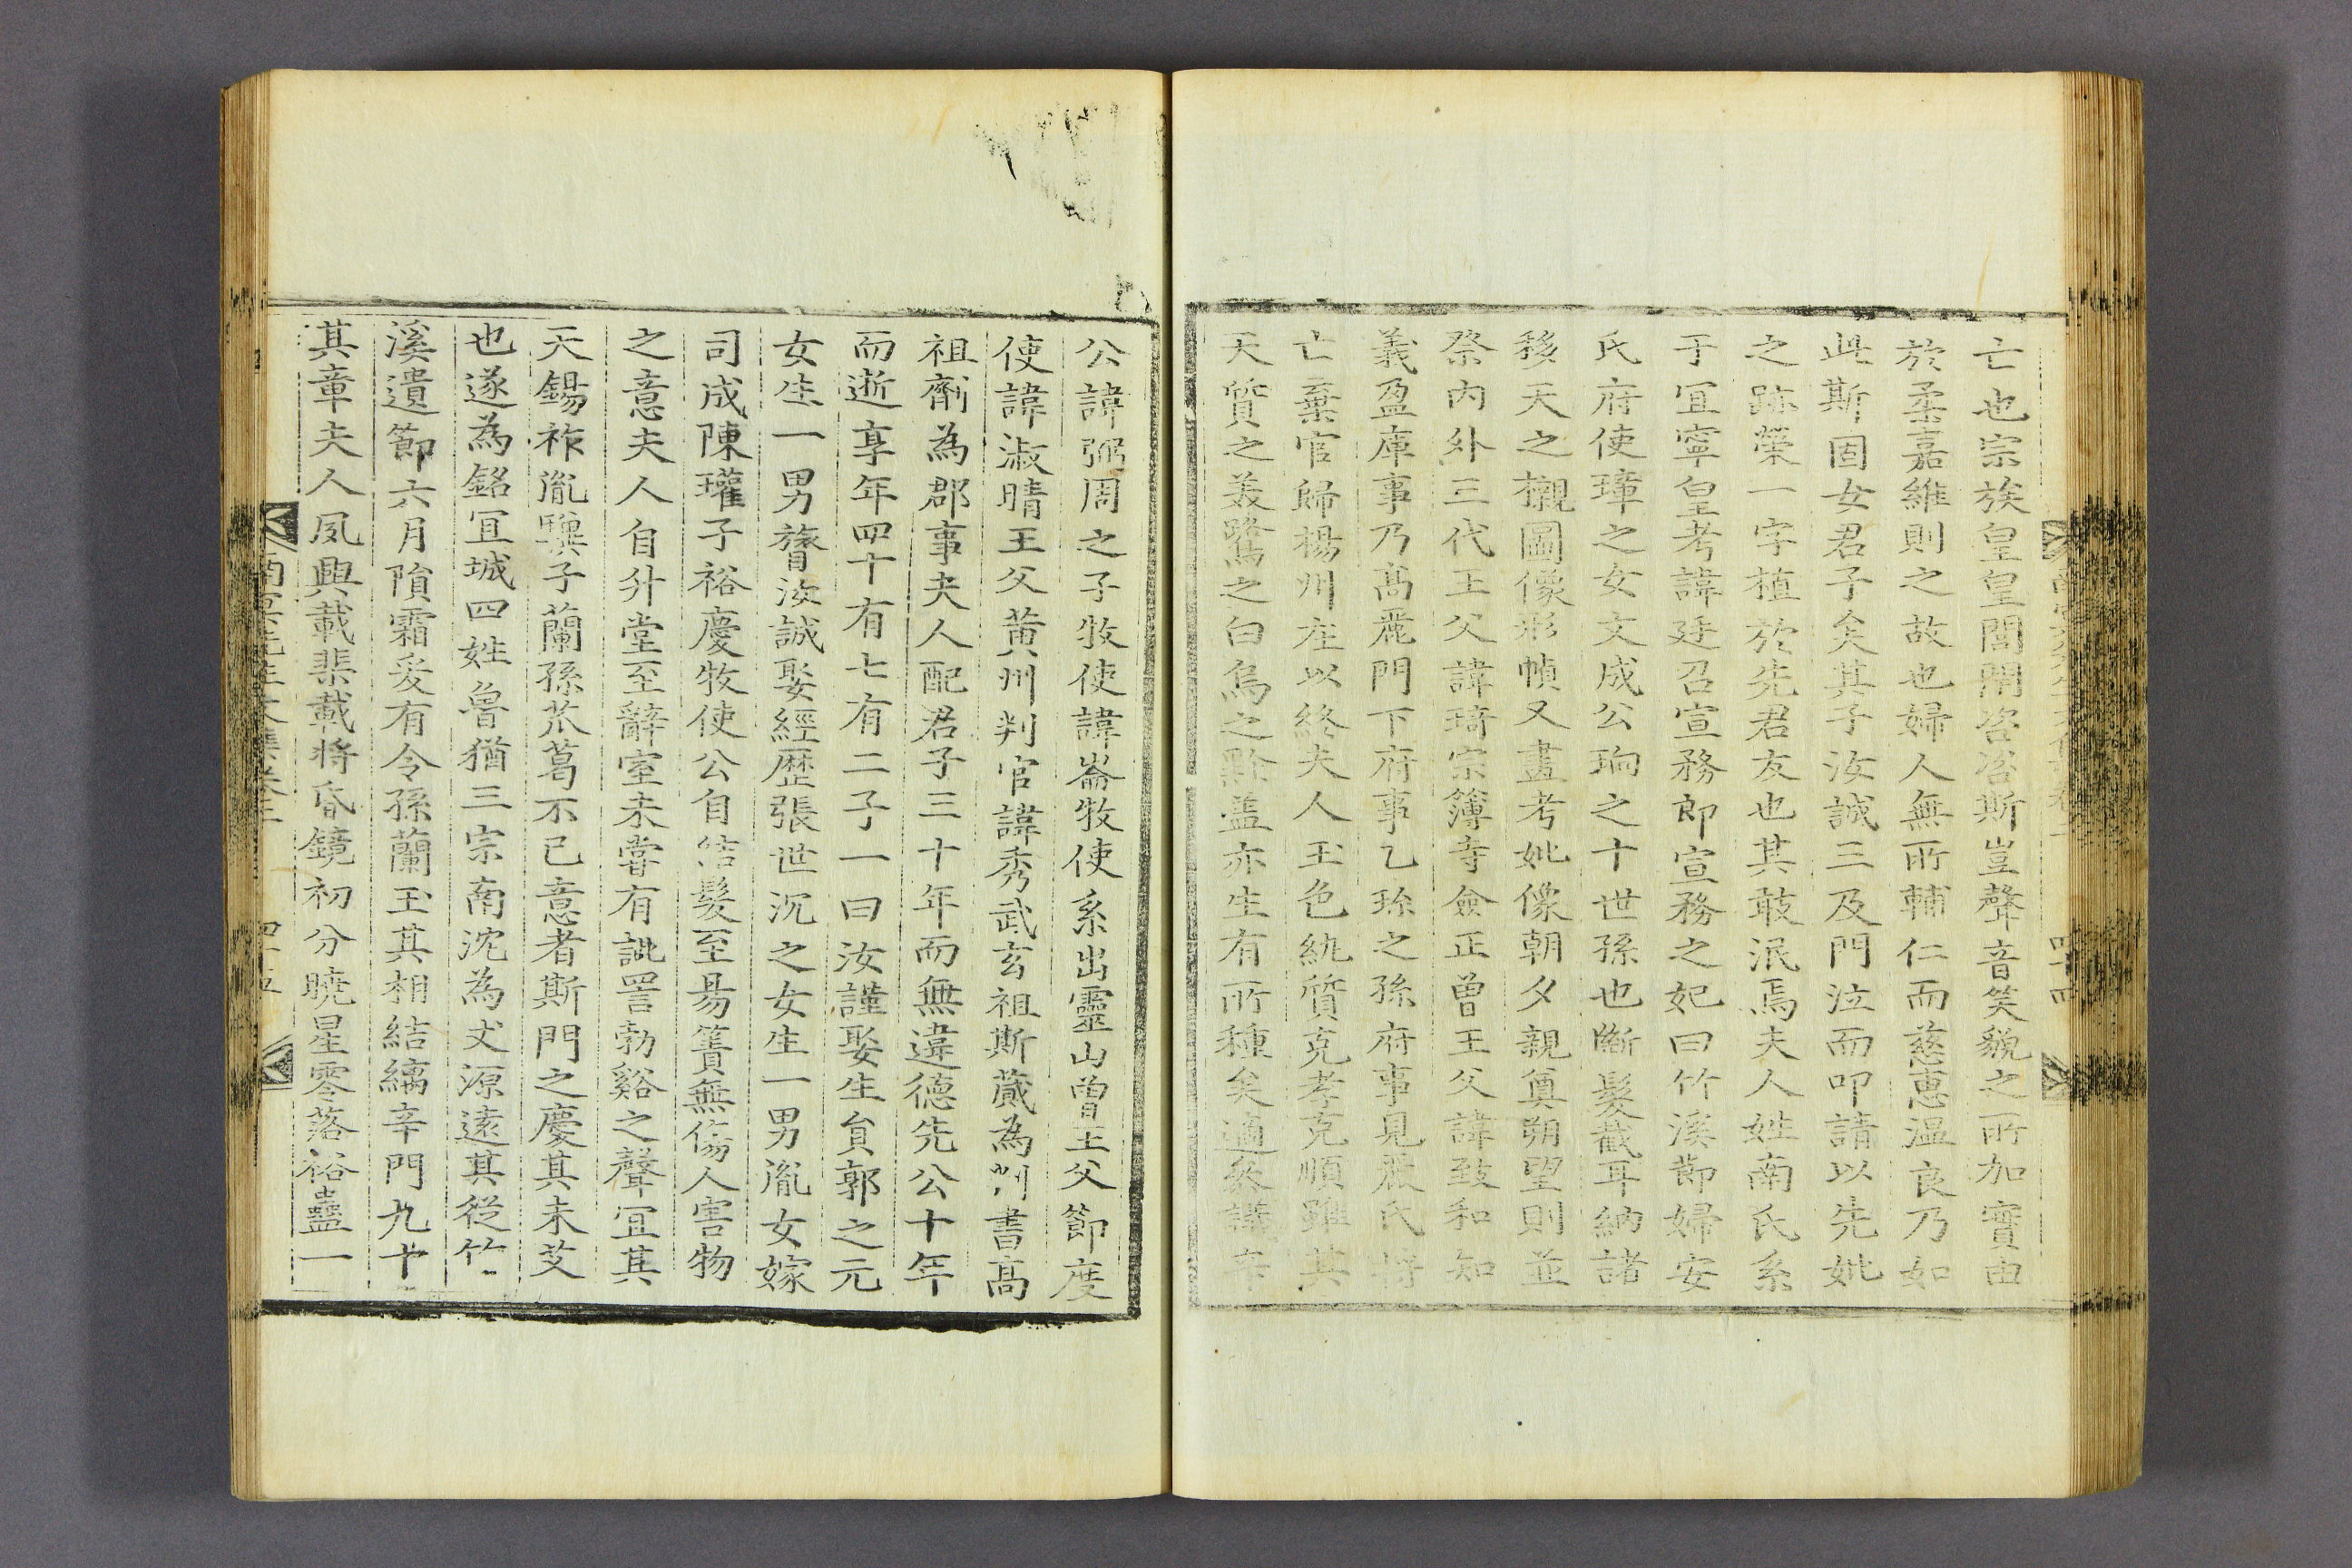 亡也宗族皇皇閭閻咨咨斯豈聲音笑貌之所加實由
於柔嘉維則之故也婦人無所輔仁而慈惠溫良乃如
此斯固女君子矣其子汝誠三及門泣而叩請以先妣
之跡榮一字植於先君友也其敢泯焉夫人姓南氏系
于宜寧皇考諱廷召宣務郎宣務之妃曰竹溪節婦安
氏府使璋之女文成公珦之十世孫也斷髮截耳納諸
移天之櫬圖像形幀又畫考妣像朝夕親奠朔望則並
祭內外三代王父諱琦宗簿寺僉正曾王父諱致和知
義盈庫事乃高麗門下府事乙珍之孫府事見嚴氏將
亡棄官歸楊州庄以終夫人玉色紈質克孝克順雖其
天質之美鷺之白烏之黔盖亦生有所種矣適參議辛
公諱弼周之子牧使諱崙牧使系出靈山曾王父節度
使諱淑晴王父黃州判官諱秀武玄祖斯蕆為判書高
祖劑為郡事夫人配君子三十年而無違德先公十年
而逝享年四十有七有二子一曰汝謹娶生員郭之元
女生一男贅汝誠娶經歷張世沉之女生一男胤女嫁
司成陳瓘子裕慶牧使公自結髮至昜簀無傷人害物
之意夫人自升堂至辭室未甞有誂詈勃谿之聲宜其
天錫祚胤驥子蘭孫苽葛不已意者斯門之慶其未艾
也遂為銘宜城四姓魯猶三宗南沈為丈源遠其從竹
溪遺節六月隕霜爰有令孫蘭玉其相結縭辛門九十
其章夫人夙興載棐載將昏鏡初分曉星零落裕蠱一
四十四
四十五